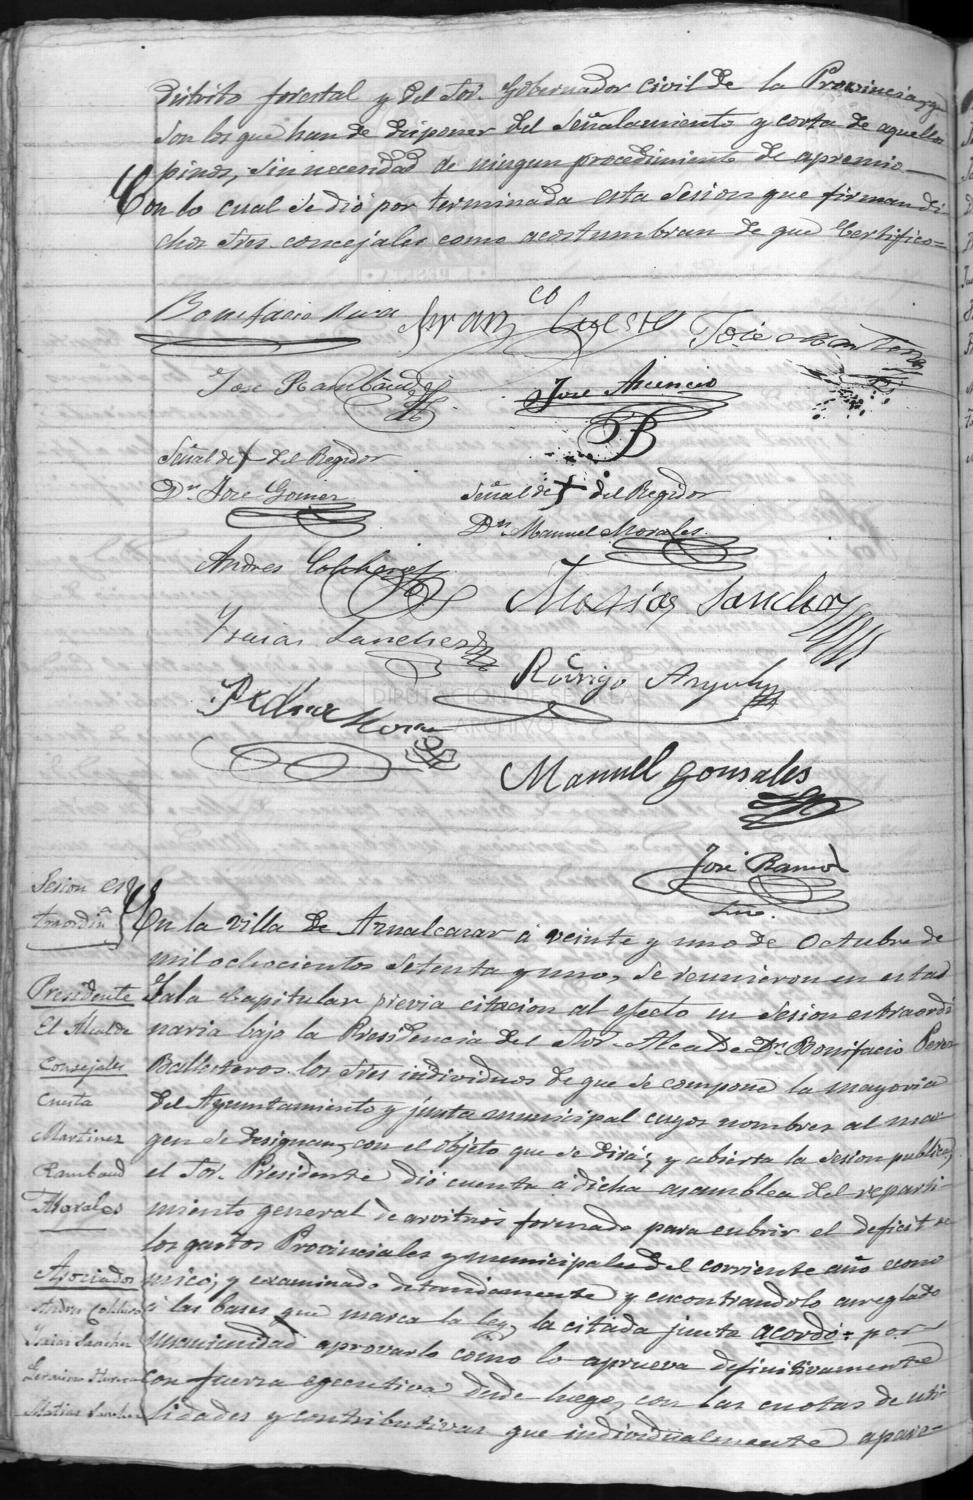 distrito forestal y del Sor. Gobernador Civil de la Provincia, q.e
son los que han de disponer del señalamiento y corta de aquellos
pinos, sin necesidad de ningun procedimiento de apremio
Con lo cual se dió por terminada esta sesion que firman di
chos Sres. concejales como acostumbran de que Certifico=
Bonifacio
Fran co Cuesta
José Martinez
José Rambaud
José Asencio
Señal de + del Regidor
Dn José Gomez
Señal de + del Regidor
Dn Manuel Morales
Andres Colchero
Matias Sanchez
Isaias Sanchez
Rodrigo
Pedro Mora
DIPUTACIÓN DE SEVILLA
ARCHIVO
Manuel Gonsales
José Ramos
Srio.
Sesion ex
traordin.a
En la villa de Aznalcazar á veinte y uno de Octubre de
mil ochocientos setenta y uno, se reunieron en estas
Sala Capitular previa citacion al efecto en sesion estraordi
naria bajo la Presidencia del Sor. Alcalde Dn Bonifacio Perez
Ballesteros los Sres individuos de que se compone la mayoria
del Ayuntamiento y junta municipal cuyos nombres al mar-
gen se designan, con el objeto que se dirá; y abierta la sesion publica,
el Sor. Presidente dió cuenta a dicha asamblea del reparti-
miento general de arvitrios formado para cubrir el deficit de
los gastos Provinciales y municipales del corriente año econo
mico; y examinado detenidamente y encontrandolo arreglado
á las bases que marca la ley, la citada junta acordó = por
unanimidad aprovarlo como lo aprueva definitivamente
con fuerza egecutiva desde luego, con las cuotas de uti
lidades y contributivas que individualmente apare-
Presidente
El Alcalde
Consejales
Cuesta
Martinez
Rambaud
Morales
Asociados
Andres Colchero
Isaias Sanchez
Matias Sanchez